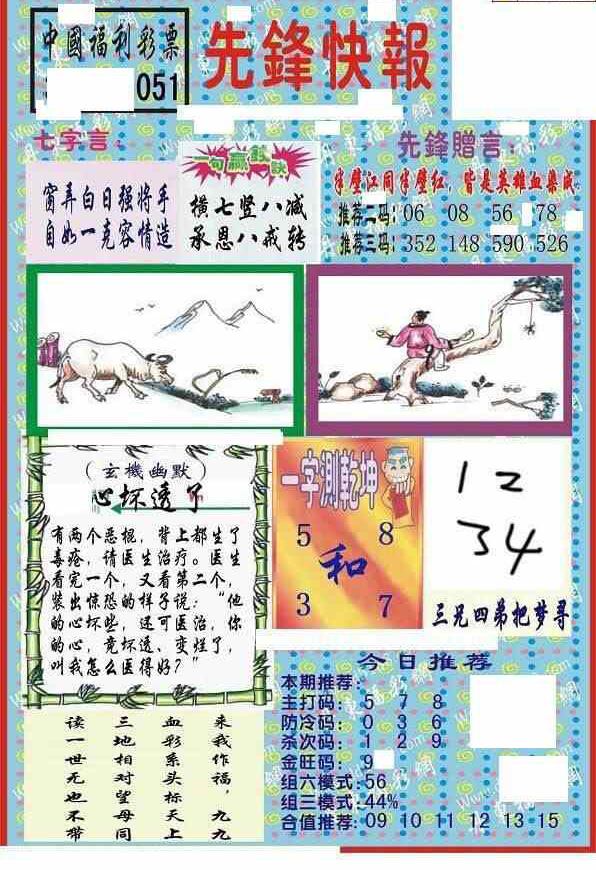 中國福利彩票
051
先鋒快報
七字言：
窗弄白日强將手
自如一克容情造
一句赢錢訣
横七竖八减
承恩八戒转
先鋒贈言：
半壁江同半壁红，皆是英雄血染成
推荐二码：06 08 56 78
推荐三码：352 148 590 526
（玄機幽默）
心坏透了
有两个恶棍，背上都生了
毒疮，请医生治疗。医生
看完一个，又看第二个，
装出惊恐的样子说：“他
的心坏些，还可医治，你
的心，竟坏透、变烂了，
叫我怎么医得好？”
一字測乾坤
5 8
和
3 7
12
34
三兄四弟把梦寻
今日推荐
本期推荐：
主打码：5 7 8
防冷码：0 3 6
杀次码：1 2 9
金旺码：9
组六模式：56
组三模式：44%
合值推荐：09 10 11 12 13 15
来我作福，九九
血彩系头标天上
三地相对望母同
读一世无也不带